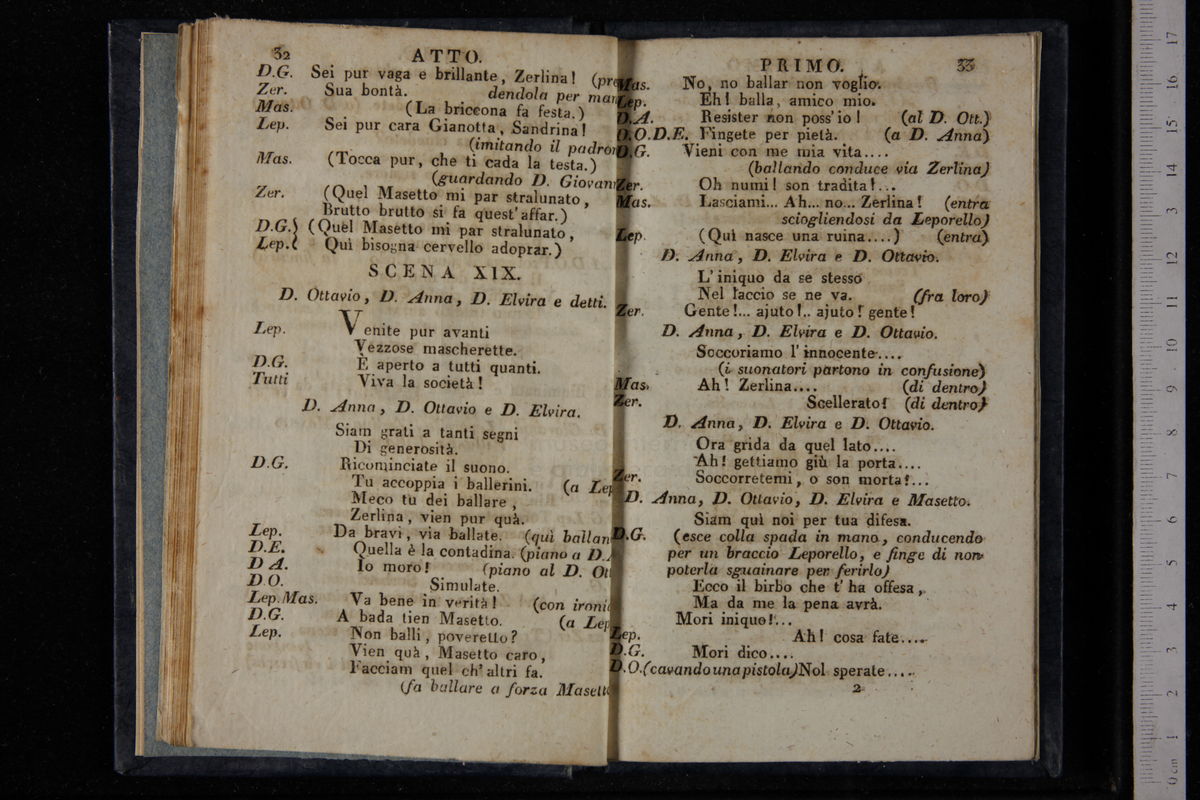 32
ATTO.
D.G. Sei pur vaga e brillante, Zerlina! (pre
Zer. Sua bontà. dendola per man
Mas. (La briccona fa festa.)
Lep. Sei pur cara Gianotta, Sandrina!
(imitando il padron
Mas. (Tocca pur, che ti cada la testa.)
(guardando D. Giovan
Zer. (Quel Masetto mi par stralunato,
Brutto brutto si fa quest' affar.)
D.G.} (Quel Masetto mi par stralunato,
Lep.{ Quì bisogna cervello adoprar.)
SCENA XIX.
D. Ottavio, D. Anna, D. Elvira e detti.
Lep. Venite pur avanti
Vezzose mascherette.
D.G. È aperto a tutti quanti.
Tutti Viva la società!
D. Anna, D. Ottavio e D. Elvira.
Siam grati a tanti segni
Di generosità.
D.G. Ricominciate il suono.
Tu accoppia i ballerini. (a Lep
Meco tu dei ballare,
Zerlina, vien pur quà.
Lep. Da bravi, via ballate. (quì ballan
D.E. Quella è la contadina. (piano a D.A
D A. Io moro! (piano al D. Ott
D.O. Simulate.
Lep.Mas. Va bene in verità! (con ironia
D.G. A bada tien Masetto. (a Lep
Lep. Non balli, poveretto?
Vien quà, Masetto caro,
Facciam quel ch' altri fa.
(fa ballare a forza Masetto
PRIMO.
33
Mas. No, no ballar non voglio.
Lep. Eh! balla, amico mio.
D.A. Resister non poss' io! (al D. Ott.)
D.O.D.E. Fingete per pietà. (a D. Anna)
D.G. Vieni con me mia vita....
(ballando conduce via Zerlina)
Zer. Oh numi! son tradita!...
Mas. Lasciami... Ah... no... Zerlina! (entra
sciogliendosi da Leporello)
Lep. (Quì nasce una ruina....) (entra)
D. Anna, D. Elvira e D. Ottavio.
L' iniquo da se stesso
Nel laccio se ne va. (fra loro)
Zer. Gente!... ajuto!.. ajuto! gente!
D. Anna, D. Elvira e D. Ottavio.
Soccoriamo l' innocente....
(i suonatori partono in confusione)
Mas. Ah! Zerlina.... (di dentro)
Zer. Scellerato! (di dentro)
D. Anna, D. Elvira e D. Ottavio.
Ora grida da quel lato....
Ah! gettiamo giù la porta....
Zer. Soccorretemi, o son morta!...
D. Anna, D. Ottavio, D. Elvira e Masetto.
Siam quì noi per tua difesa.
D.G. (esce colla spada in mano, conducendo
per un braccio Leporello, e finge di non
poterla sguainare per ferirlo)
Ecco il birbo che t' ha offesa,
Ma da me la pena avrà.
Mori iniquo!...
Lep. Ah! cosa fate....
D.G. Mori dico....
D.O.(cavando una pistola)Nol sperate....
2
0 cm 1 2 3 4 5 6 7 8 9 10 11 12 13 14 15 16 17